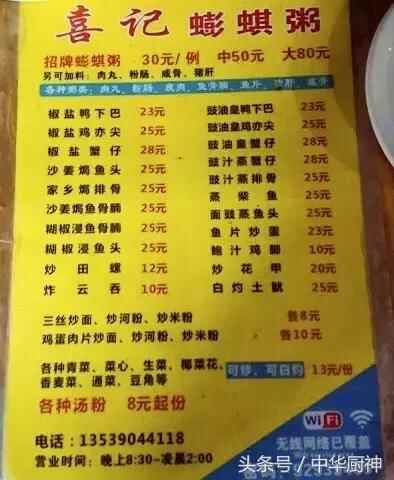 喜记蟛蜞粥
招牌蟛蜞粥 30元/例 中50元 大80元
另可加料：肉丸、粉肠、咸骨、猪肝
椒盐鸭下巴 23元 豉油皇鸭下巴 23元
椒盐鸡亦尖 25元 豉油皇鸡亦尖 25元
椒盐蟹仔 28元 豉油皇蟹仔 28元
沙姜焗鱼头 25元 豉汁蒸蟹仔 28元
家乡焗排骨 25元 豉汁蒸排骨 25元
沙姜焗鱼骨腩 25元 蒸柴鱼 25元
糊椒浸鱼骨腩 25元 面豉蒸鱼头 25元
糊椒浸鱼头 25元 鱼片炒蛋 23元
炒田螺 12元 鲍汁鸡脚 10元
炸云吞 10元 炒花甲 20元
白灼土鱿 25元
三丝炒面、炒河粉、炒米粉 各8元
鸡蛋肉片炒面、炒河粉、炒米粉 各10元
各种青菜、菜心、生菜、椰菜花、
香麦菜、通菜、豆角等 可炒、可白灼 13元/份
各种汤粉 8元起份
电话：13539044118
营业时间：晚上8:30-凌晨2:00
WiFi
无线网络已覆盖
头条号 / 中华厨神